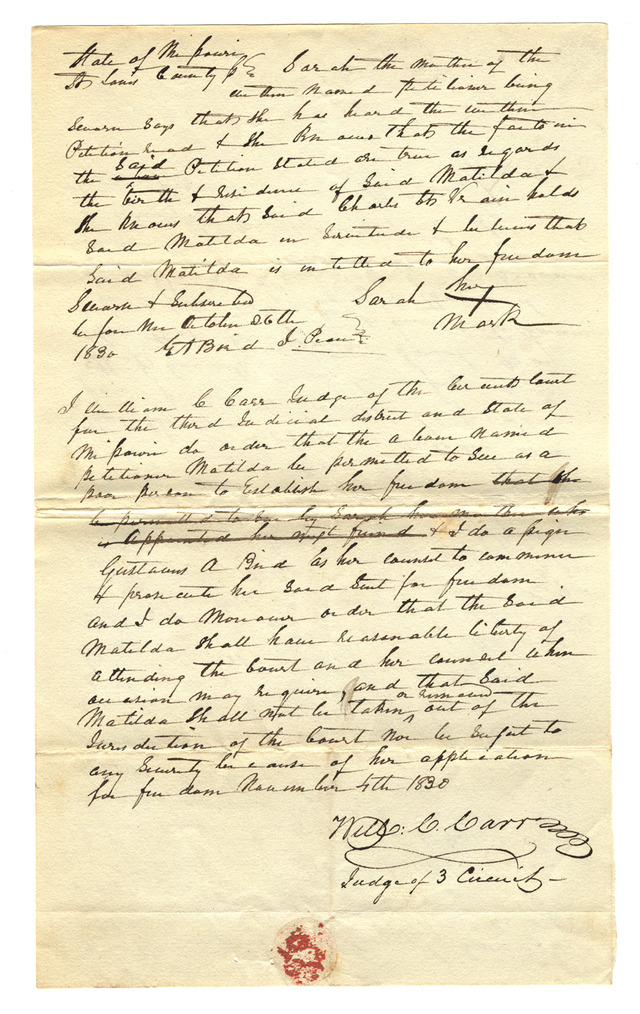 State of Missouri
St Louis County Sarah the mother of the
within named petitioner being
Sworn says that she has heard the within
Petition read & she Knows that the facts in
the Said Petition Stated are true as regards
the birth & residence of Said Matilda &
She Knows that Said Charles St Vrain holds
Said Matilda in Servitude & believes that
Said Matilda is intitled to her freedom
Sworn & Subscribed Sarah her X
before Me October 26th Mark
1830 G A Bird J. Peace
I William C Carr Judge of the Circuit Court
for the third Judicial district and State of
Missouri do order that the above Named
petitioner Matilda be permitted to Sue as a
poor person to Establish her freedom that she
be permitted to sue by Sarah her mother who
is Appointed her next friend & I do assign
Gustavus A Bird as her counsel to commence
& prosecute her Said Suit for freedom
and I do Moreover order that the Said
Matilda Shall have reasonable liberty of
attending the Court and her counsel when
occasion may require, and that Said
Matilda Shall not be taken or removed out of the
Jurisdiction of the Court nor be Subject to
any Severity because of her application
for freedom November 4th 1830
Will: C. Carr
Judge of 3 Circuit